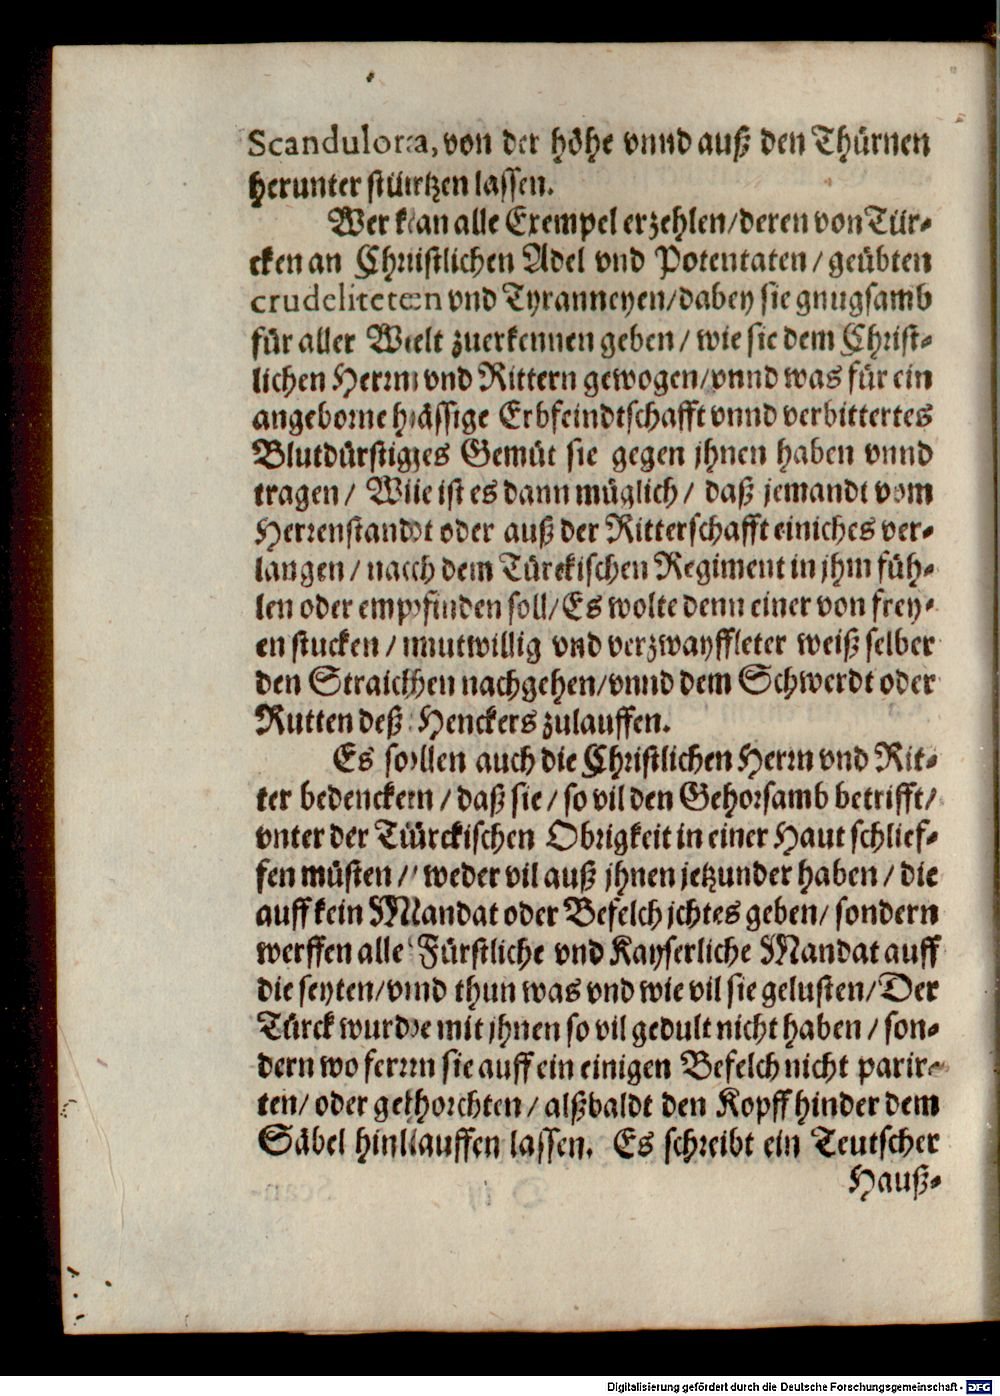 Scandulora, von der höhe vnnd auß den Thürnen
herunter stürtzen lassen.
Wer kan alle Exempel erzehlen/deren von Tür-
cken an Christlichen Adel vnd Potentaten/geübten
crudeliteten vnd Tyranneyen/dabey sie gnugsamb
für aller Welt zuerkennen geben/wie sie dem Christ-
lichen Herrn vnd Rittern gewogen/vnnd was für ein
angeborne hässige Erbfeindtschafft vnnd verbittertes
Blutdürstiges Gemüt sie gegen jhnen haben vnnd
tragen/ Wie ist es dann müglich/ daß jemandt vom
Herrenstandt oder auß der Ritterschafft einiches ver-
langen/nach dem Türckischen Regiment in jhm füh-
len oder empfinden soll/Es wolte denn einer von frey-
en stucken/mutwillig vnd verzwayffleter weiß selber
den Straichen nachgehen/vnnd dem Schwerdt oder
Rutten deß Henckers zulauffen.
Es sollen auch die Christlichen Herrn vnd Rit-
ter bedencken/daß sie/so vil den Gehorsamb betrifft/
vnter der Türckischen Obrigkeit in einer Haut schlief-
fen müsten/ weder vil auß jhnen jetzunder haben/die
auff kein Mandat oder Befelch jchtes geben/sondern
werffen alle Fürstliche vnd Kayserliche Mandat auff
die seyten/vnd thun was vnd wie vil sie gelusten/Der
Türck wurde mit jhnen so vil gedult nicht haben/son-
dern wo ferrn sie auff ein einigen Befelch nicht parir-
ten/oder gehorchten/alßbaldt den Kopff hinder dem
Säbel hinlauffen lassen. Es schreibt ein Teutscher
Hauß-
Digitalisierung gefördert durch die Deutsche Forschungsgemeinschaft - DFG